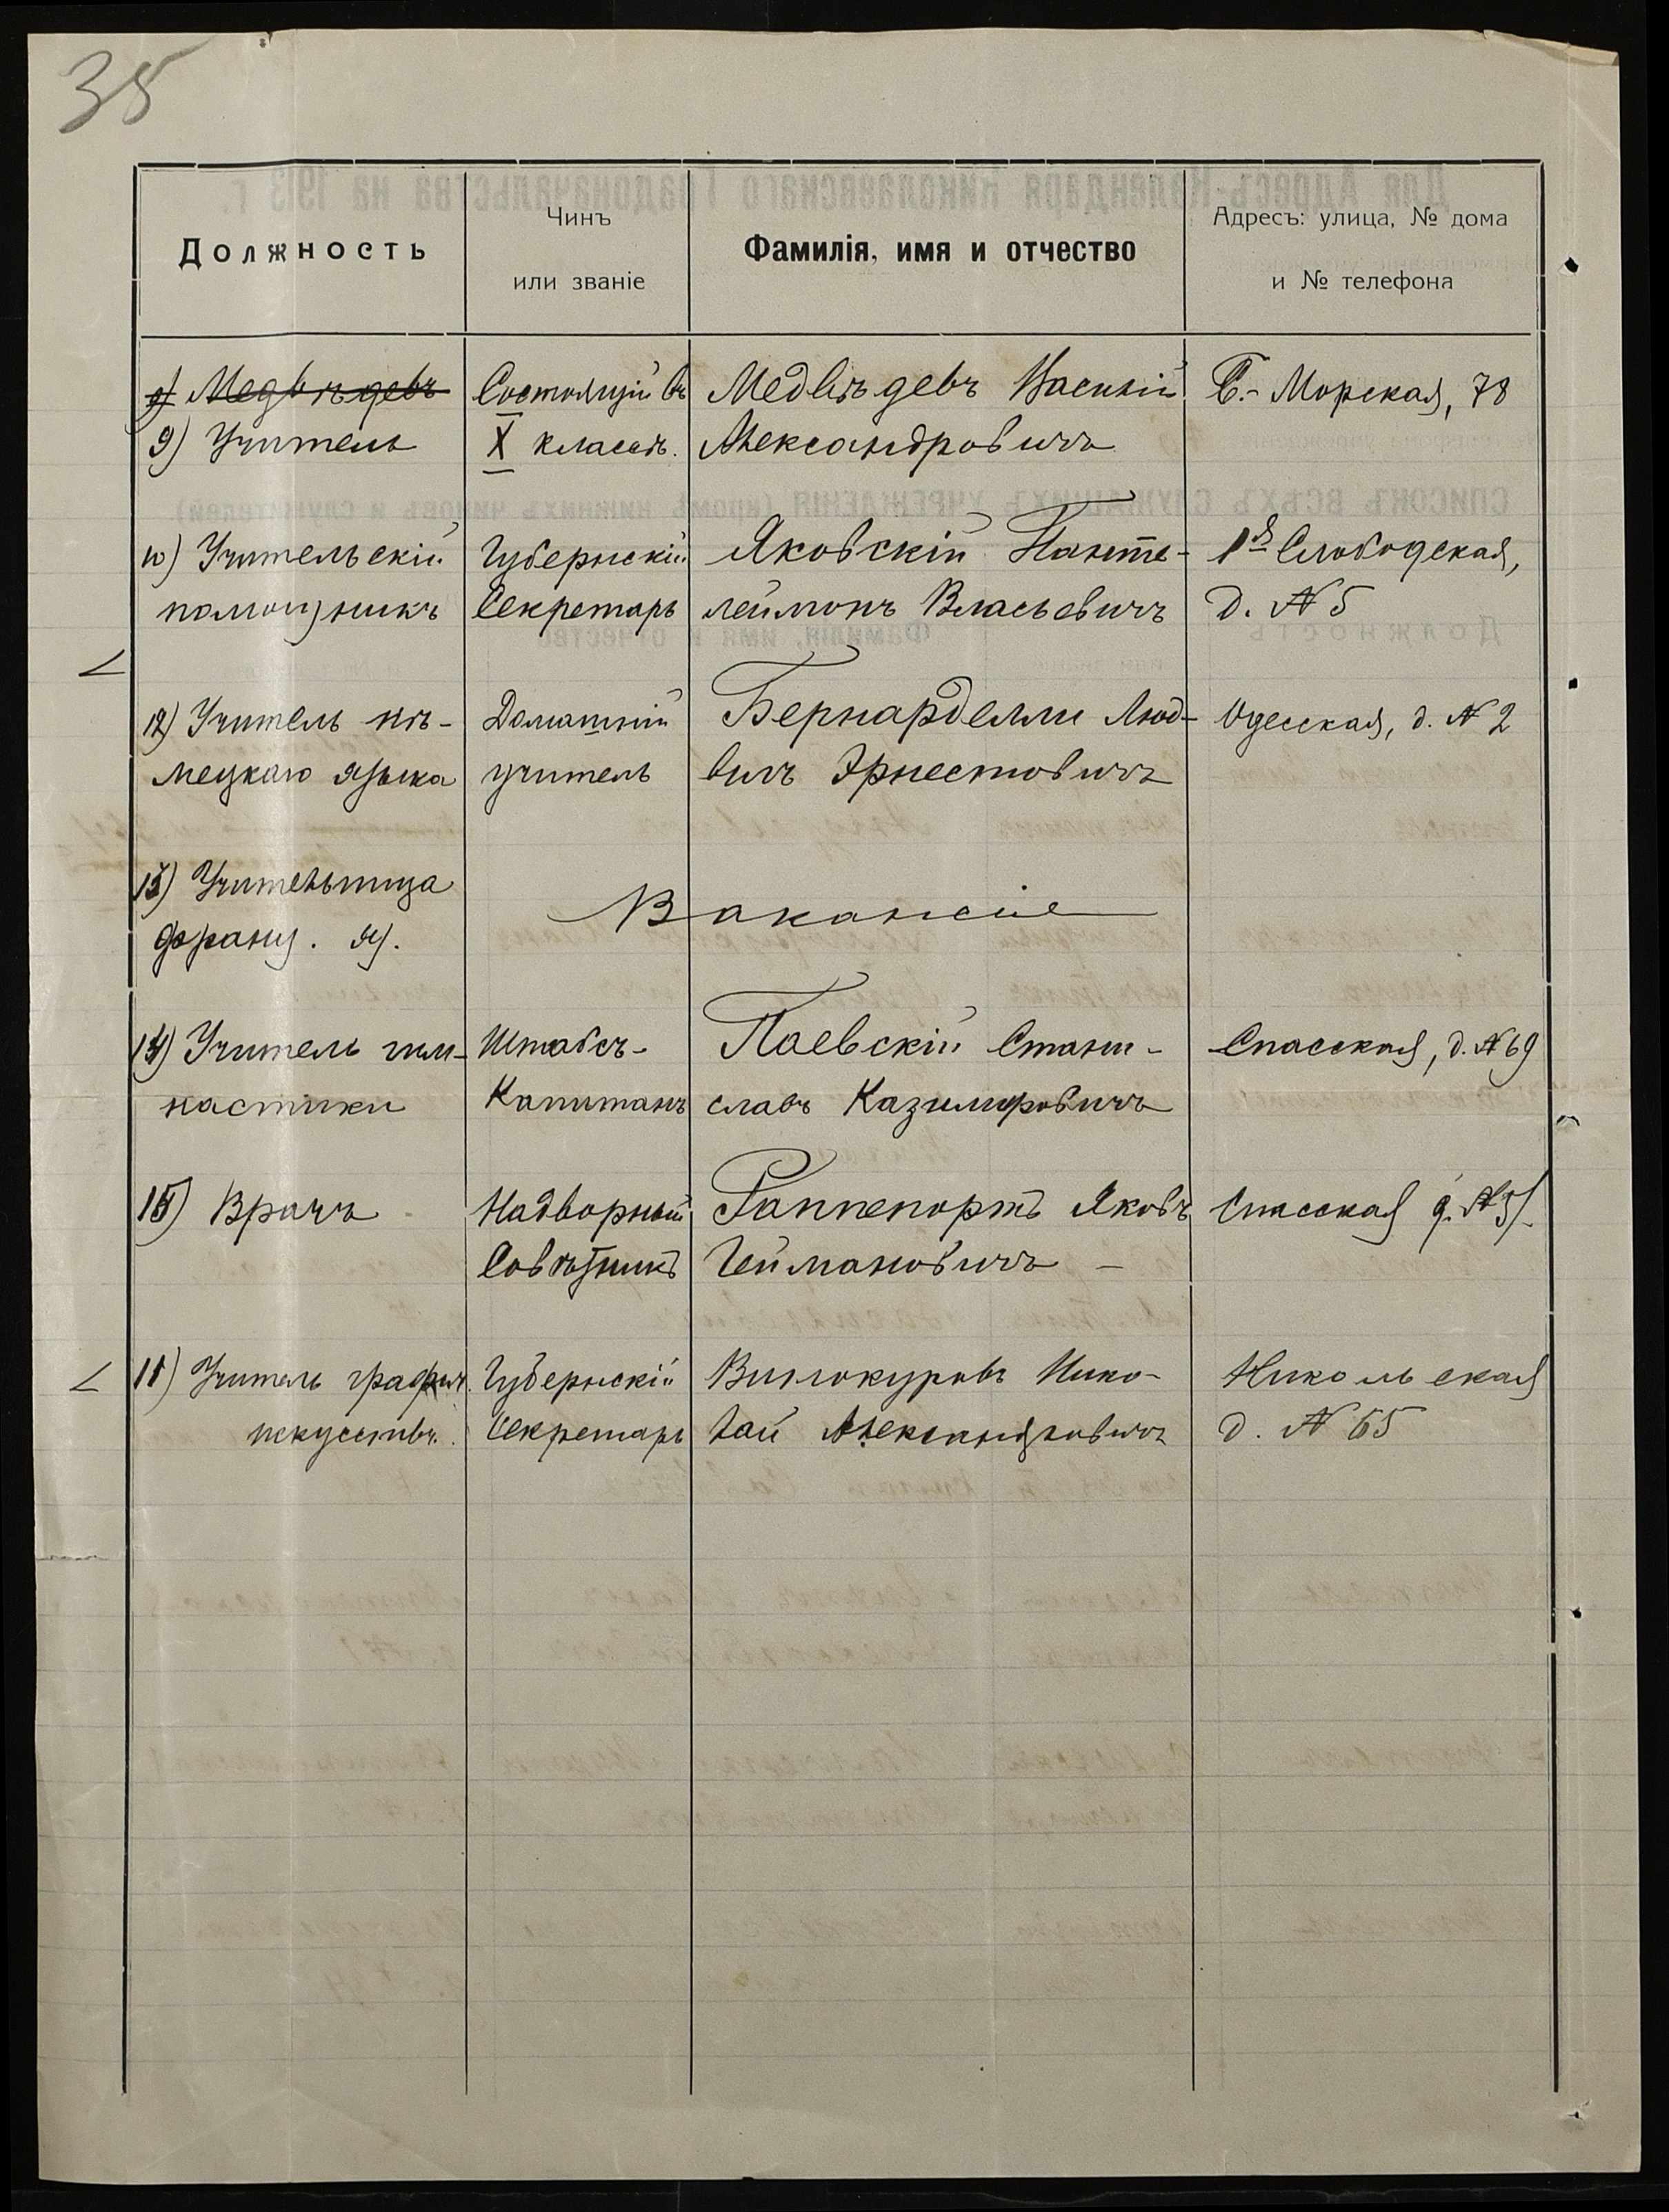 35
Должность
Чинъ
или званіе
Фамилія, имя и отчество
Адресъ: улица, № дома
и № телефона
9) Медвѣдевъ
9) Учитель
Состоящій въ
X классѣ.
Медвѣдевъ Василій
Александровичъ
Б.- Морская, 78
10) Учительскій
помощникъ
Губернскій
Секретарь
Яковскій Панте-
леймонъ Власьевичъ
1ая Слободская,
д. № 5
12) Учитель нѣ-
мецкаго языка
Домашній
учитель
Бернарделли Люд-
вигъ Эрнестовичъ
Одесская, д. № 2
13) Учительница
франц. яз.
Вакансія
14) Учитель гим-
настики
Штабсъ-
Капитанъ
Паевскій Стани-
славъ Казимировичъ
Спасская, д. № 69
15) Врачъ
Надворный
Совѣтникъ
Раппепортъ Яковъ
Геймановичъ -
Спасская д. №
11) Учитель графич.
искусствъ.
Губернскій
Секретарь
Винокуровъ Нико-
лай Александровичъ
Никольская
д. № 65